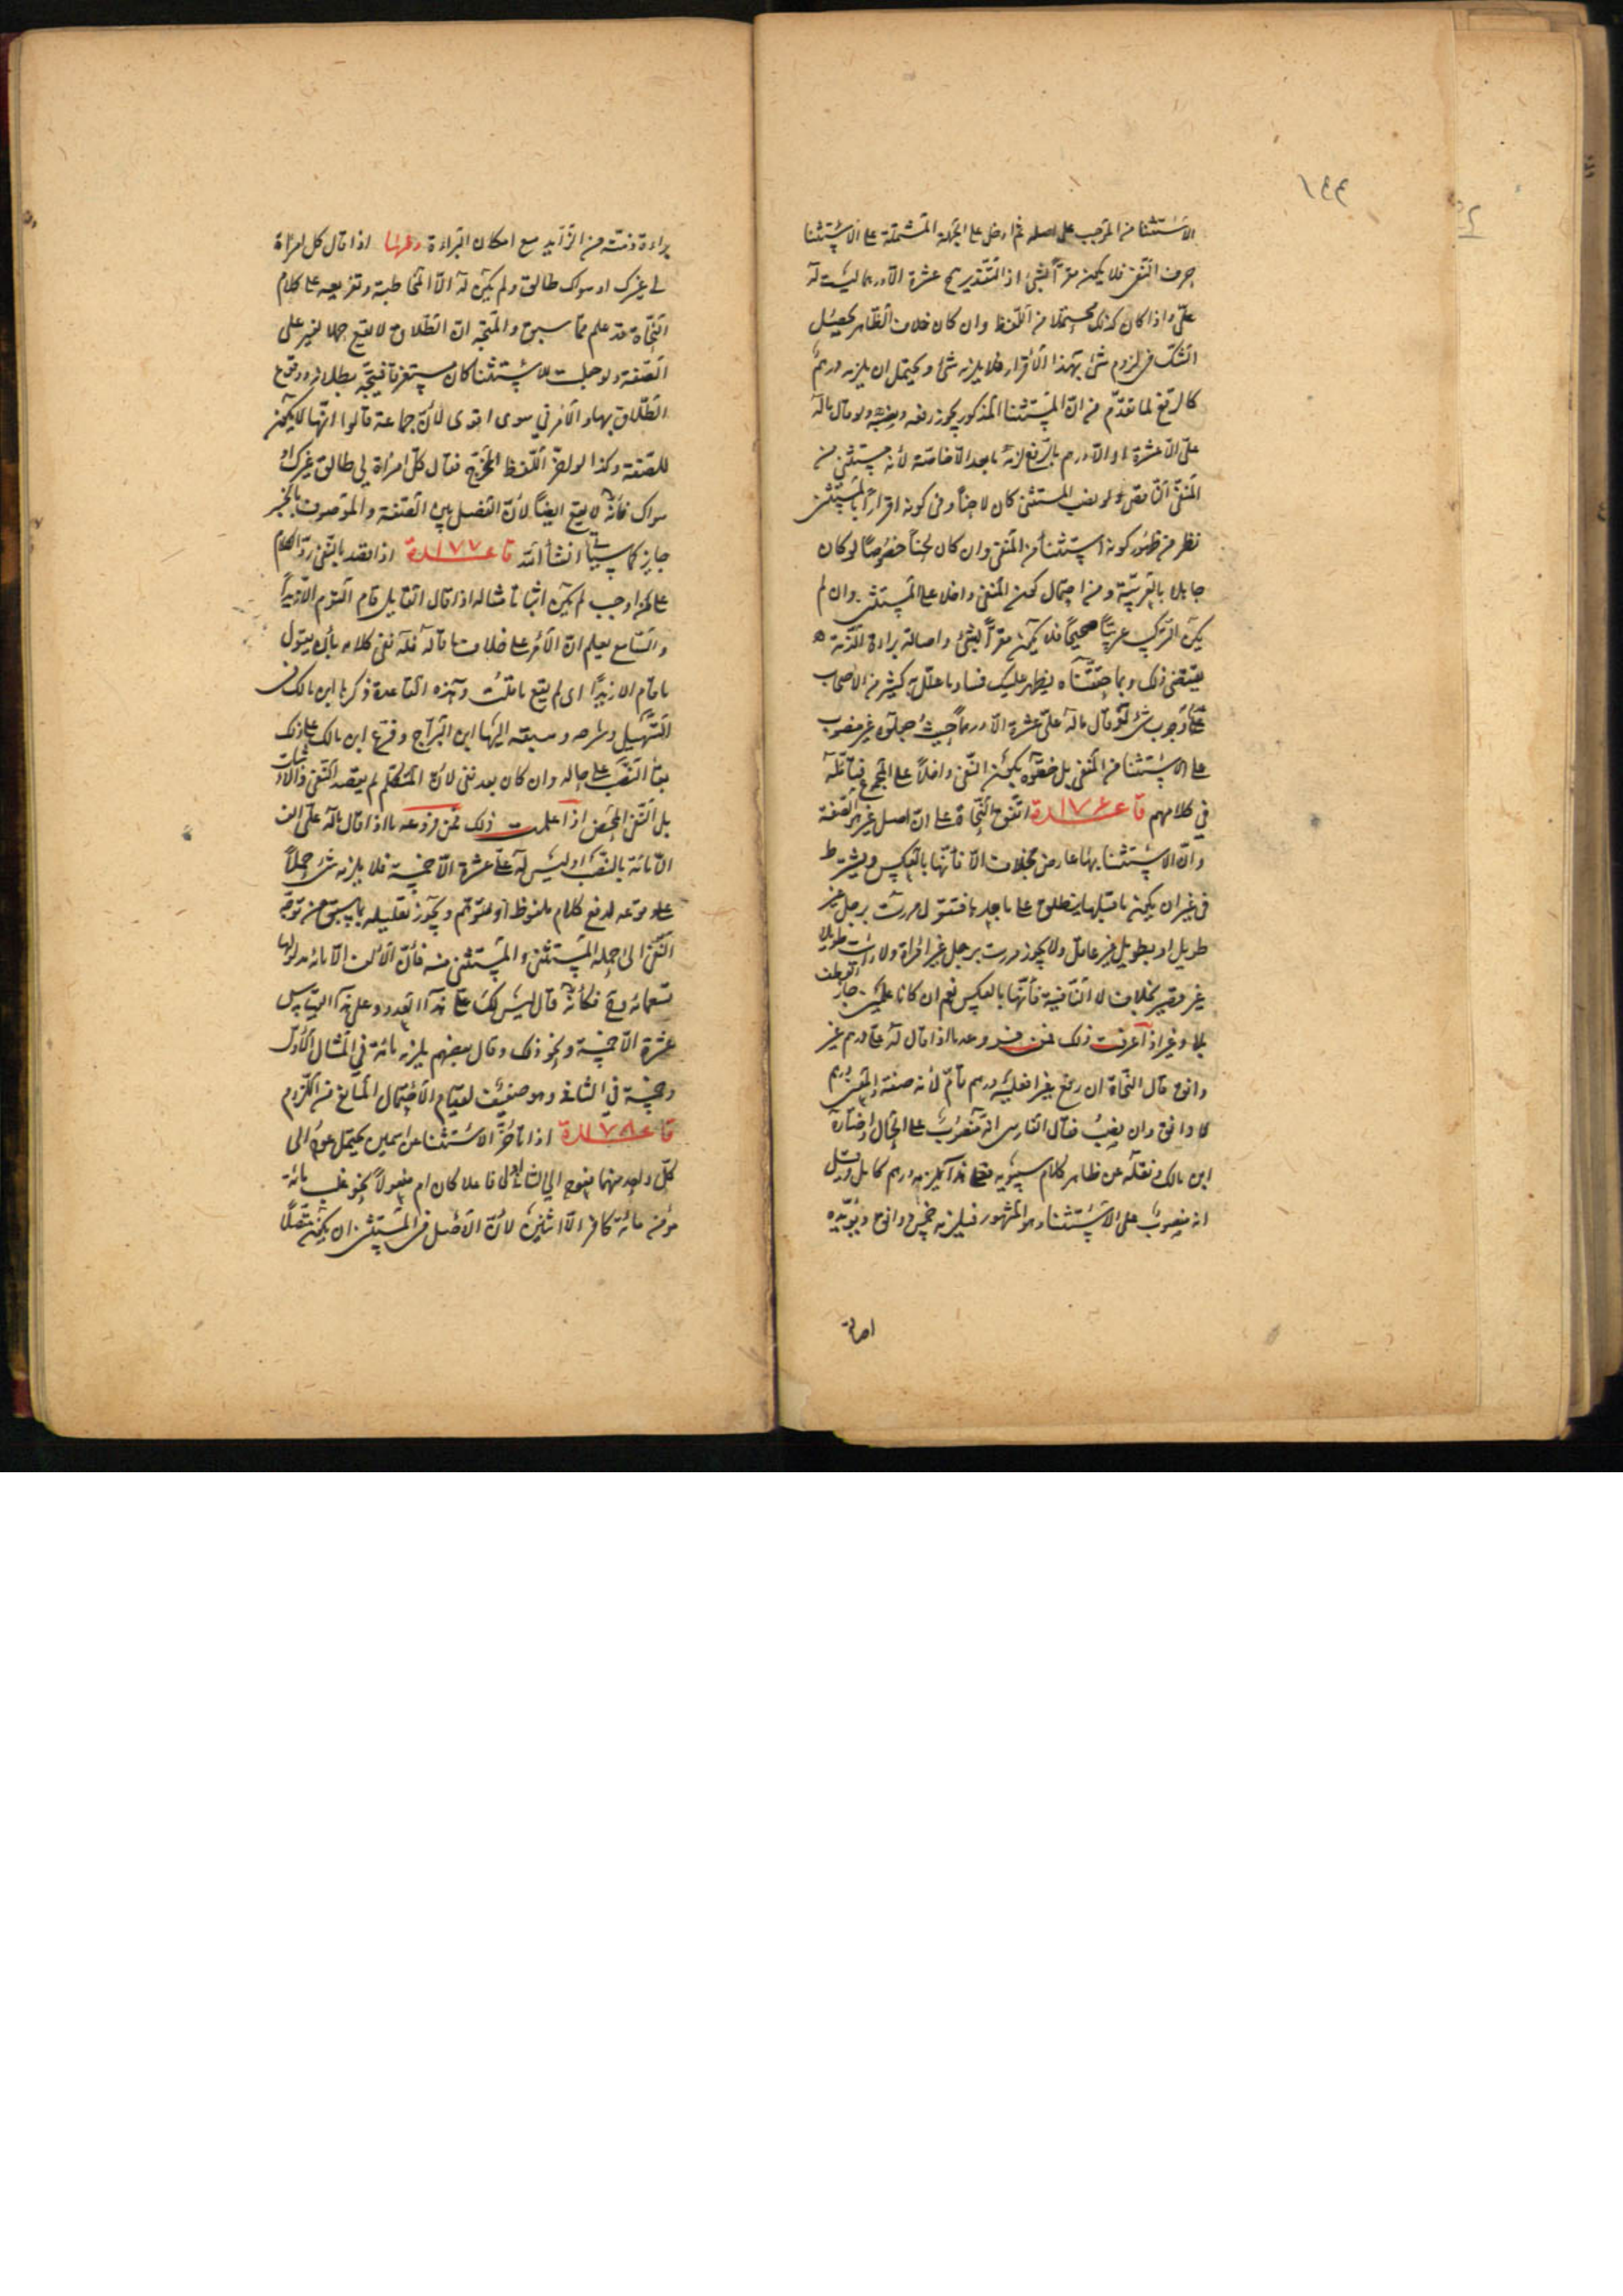 ١٤٤
الاستثنا من الموجب على اصله ثم ادخل على الجملة المشتملة على الاستثنا
حرف النفى فلا يكون مقرا بشئ اذ التقدير ح عشرة الا درهما ليست له
على واذا كان كذلك محتملا من اللفظ وان كان خلاف الظاهر يحصل
الشك فى لزوم شئ بهذا الاقرار فلا يلزمه شئ ويحتمل ان يلزمه درهم
كالرفع لما تقدم من ان المستثنا المذكور يجوز رفعه ونصبه ولو قال ماله
على الا عشرة او الا درهم بالرفع لزمه ما بعد الا خاصة لأنه مستثنى من
المنفى الناقص ولو نصب المستثنى كان لاحنا وفى كونه اقرارا بالمستثنى
نظر من ظهور كونه استثنأ من المنفى وان كان لحنا خصوصا لو كان
جاهلا بالعربية ومن احتمال كون المنفى داخلا على المستثنى وان لم
يكن التركيب عربيا صحيحا فلا يكون مقرا بشئ واصالة براءة الذمة
يقتضى ذلك وبما حققناه يظهر عليك فساد ما علل به كثير من الأصحاب
على وجوب شئ لو قال ماله على عشرة الا درهما حيث جعلوه غير منصوب
على الاستثنا من المنفى بل خصوه بكون النفى داخلا على المجموع فتأمله
فى كلامهم قاعدة ١٧٦ اتفق النحاة على ان اصل غير الصفة
وان الاستثنا بها عارض بخلاف الا فأنها بالعكس ويشترط
فى غير ان يكون ما قبلها ينطلق على ما بعدها فتقول مررت برجل غير
طويل او بطويل غير عاقل ولا يجوز مررت برجل غير امرأة ولا رأيت طويلا
غير قصير بخلاف لا النافية فأنها بالعكس نعم ان كانا علمين جاز العطف
بلا وغير اذا عرفت ذلك فمن فروعه ما اذا قال له على درهم غير
دانق قال النحاة ان رفع غيرا فعليه درهم تام لأنه صفة والمعنى درهم
لا دانق وان نصب فقال الفارسى انه منصوب على الحال واختاره
ابن مالك ونقله عن ظاهر كلام سيبويه فعلى هذا يلزمه درهم كامل وقيل
انه منصوب على الاستثنا وهو المشهور فيلزمه خمس دوانق ويؤيده
اصالة
براءة ذمته من الزايد مع امكان البراءة ومنها اذا قال كل امرأة
لى غيرك او سواك طالق ولم يكن له الا المخاطبة وتفريعه على كلام
النحاة قد علم مما سبق والمتجه ان الطلاق لا يقع حملا لغير على
الصفة ولو جعلت للاستثنا كان مستغرقا فيتجه بطلانه ووقوع
الطلاق بها والامر فى سوى اقوى لأن جماعة قالوا انها لا تكون
للصفة وكذا لو اخر اللفظ المخرج فقال كل امرأة لى طالق غيرك او
سواك فأنه لا يقع ايضا لأن الفصل بين الصفة والموصوف بالخبر
جايز كما سيأتى انشأ الله قاعدة ١٧٧ اذا قصد بالنفى رد الكلام
على من اوجب لم يكن اثباتا مثاله اذا قال القايل قام القوم الا زيدا
والسامع يعلم ان الأمر على خلاف ما قاله فله نفى كلامه بأن يقول
ما قام الا زيدا اى لم يقع ما قلت وهذه القاعدة ذكرها ابن مالك فى
التسهيل وشرحه وسبقه اليها ابن السراج وفرع ابن مالك على ذلك
بقأ النصب على حاله وان كان بعد نفى لأن المتكلم لم يقصد النفى والاثبات
بل النفى المحض اذا علمت ذلك فمن فروعه ما اذا قال ماله على الف
الا مائة بالنصب او ليس له على عشرة الا خمسة فلا يلزمه شئ حملا
على وقوعه لدفع كلام ملفوظ او متوهم ويجوز تعليله بما سبق من توجه
النفى الى جملة المستثنى والمستثنى منه فأن الألف الا مائه مدلولها
تسعمائه فكأنه قال ليس لك على هذا العدد وعلى هذا القياس
عشرة الا خمسة ونحو ذلك وقال بعضهم يلزمه مائة فى المثال الأول
وخمسة فى الثانى وهو ضعيف لقيام الأحتمال المانع من اللزوم
قاعدة ١٧٨ اذا تأخر الاستثنا عن اسمين يحتمل عوده الى
كل واحد منهما فيعود الى الثانى فاعلا كان ام مفعولا نحو غلب مائة
مؤمن مائة كافر الا اثنين لأن الأصل فى المستثنى ان يكون متصلا